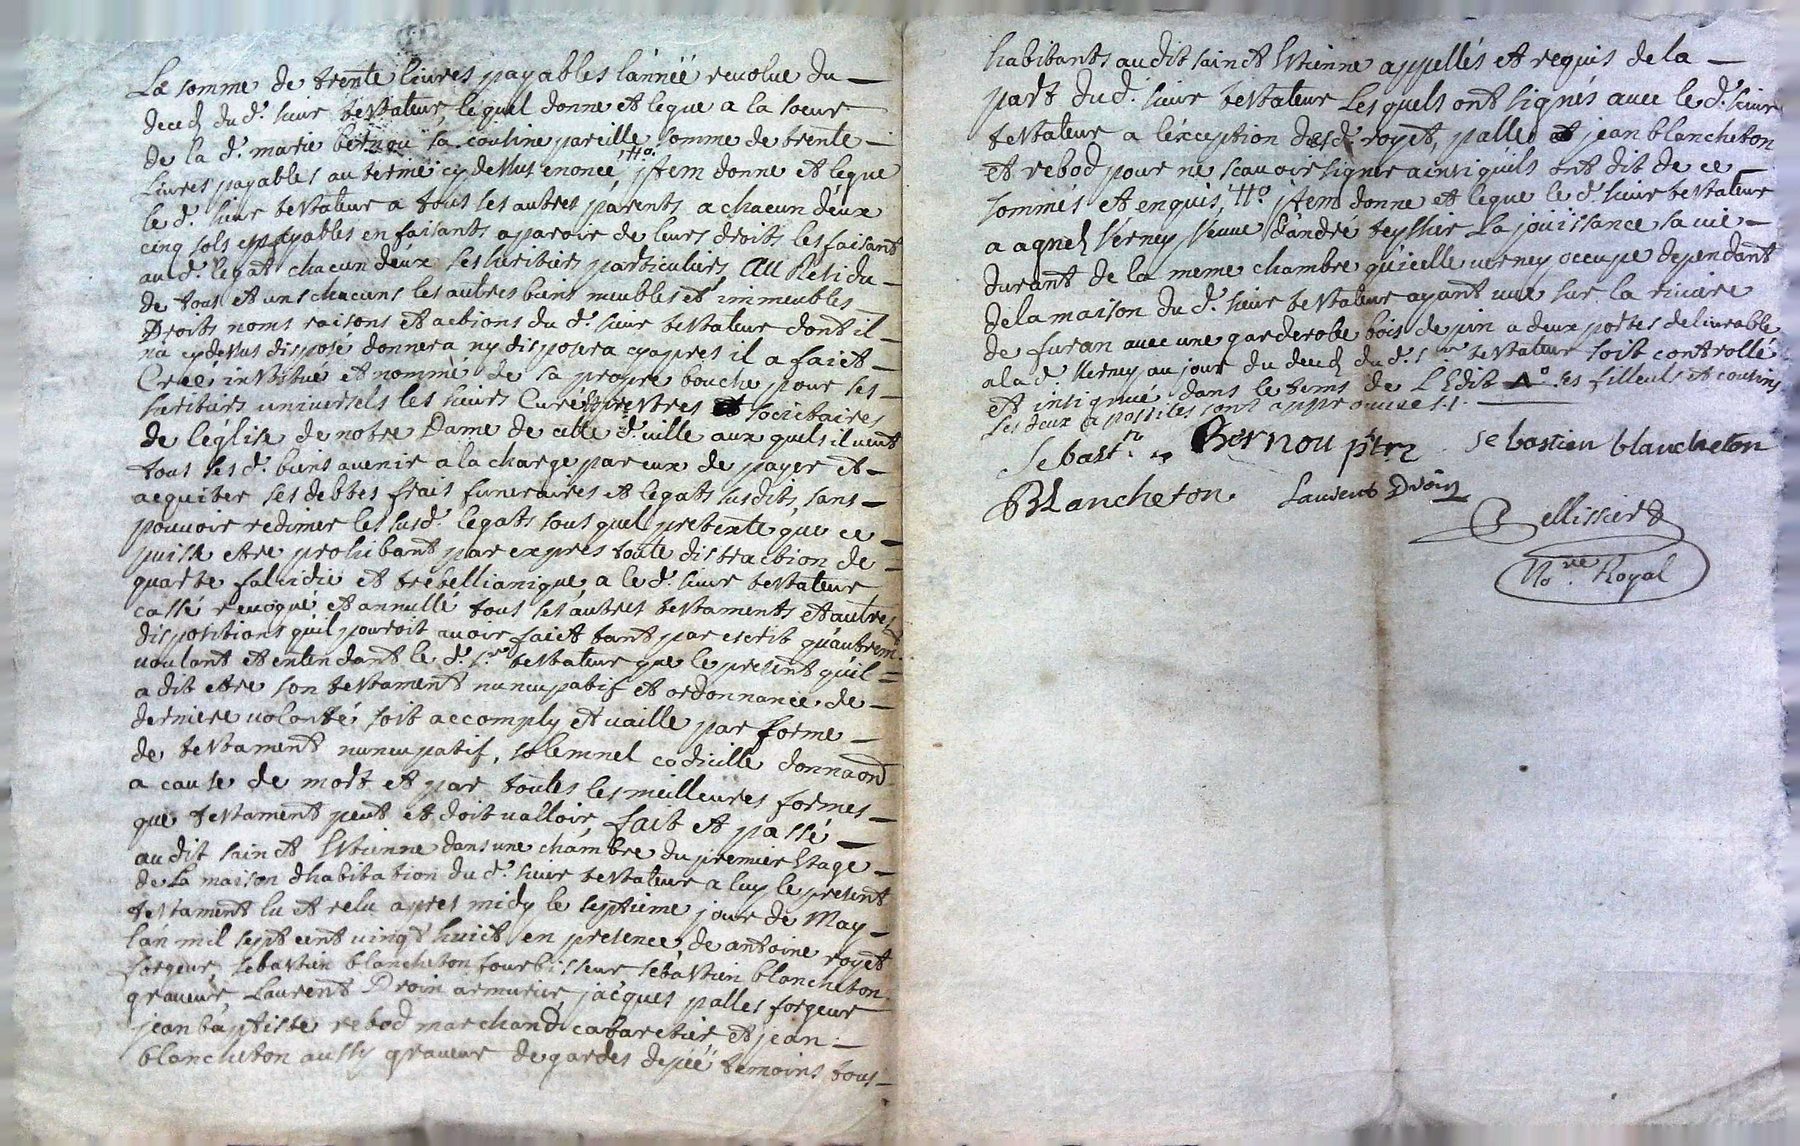 La somme de trente livres payables lánnéé revolue du
deced du d.t sieur testateur, lequel donne et legue a la soeur
de la d.t marie bernou sa cousine pareille somme de trente
Livres payables au terme cy dessus enoncé, jtem donne et legue
le d.t sieur testateur a tous ses autres parents a chacun déux
cinq sols payables en faisants aparoir de leurs droits les faisant
au d.t legat chacun déux ses heritiers particuliers, Au Residu
de tous et uns chacuns les autres biens meubles et immeubles
Droits noms raisons et actions du d.t sieur testateur dont il
na cy dessus disposé donnera ny disposera cy apres il a faict
Creéé institué et nommé de sa propre bouche pour ses
heritiers universels les sieurs Curé prestres et societaires
de léglise de notre Dame de cette d.t ville aux quels il veut
tous ses d.t biens avenir a la charge par eux de payer et
acquiter ses debtes frais funeraires et legats susdits, sans
pouvoir redimer les susd.t legats sous quel pretexte que ce
puisse etre prohibant par expres toute distraction de
quarte falcidie et trebellianique, a le d.t sieur testateur
cassé revoqué et annullé tous ses áutres testaments et autres
dispositions quíl pouroit avoir faict tant par escrit quáutremt
voulant et entendant le d.t s.r testateur que le present quíl
a dit etre son testament nuncupatif et ordonnance de
derniere volonté soit accomply et vaille par forme
de testament nuncupatif, solemnel codicille donnaon
a cause de mort et par toutes les meilleures formes
que testament peut et doit valloir, fait et passé
audit sainct Estienne dans une chámbre du premier Etage
de La maison dhabitation du d.t sieur testateur a luy le present
testament lu et relu apres midy le septieme jour de May
lán mil sept cent vingt huict en presence de antoine royet
forgeur, sebastien blancheton fourbisseur sebástien blancheton
graveur, Laurent Droin armurier, jacques palles forgeur
jean báptiste rebod marchand cabaretier et jean
blancheton aussy graveur de gardes depéé temoins tous
habitants audit sainct Estienne appellés et requis de la
part dud.t sieur testateur Lesquels ont signés avec le d.t sieur
testateur a léxception desd.t royet, palles et jean blancheton
et rebod pour ne scavoir signer ainsi quíls ont dit de ce
sommés et enquis, jtem donne et legue le d.t sieur testateur
a agnes Verney veuve dándré teyssier La jouissance sa vie
durant de la meme chambre quícelle verney occupe dependant
de la maison du d.t sieur testateur ayant vue sur la riviere
de furan avec une garderobe bois de pin a deux portes delivrable
a la d.t Verney au jour du deced du d.t s.r testateur soit controllé
et insinué dans le tems de LEdit ses filleuls et cousins
les deux apostiles sont approuvées
Sebast.n Bernou ptre sebastien blancheton
BLancheton Laurent Droin
Pellissier
No.re Royal